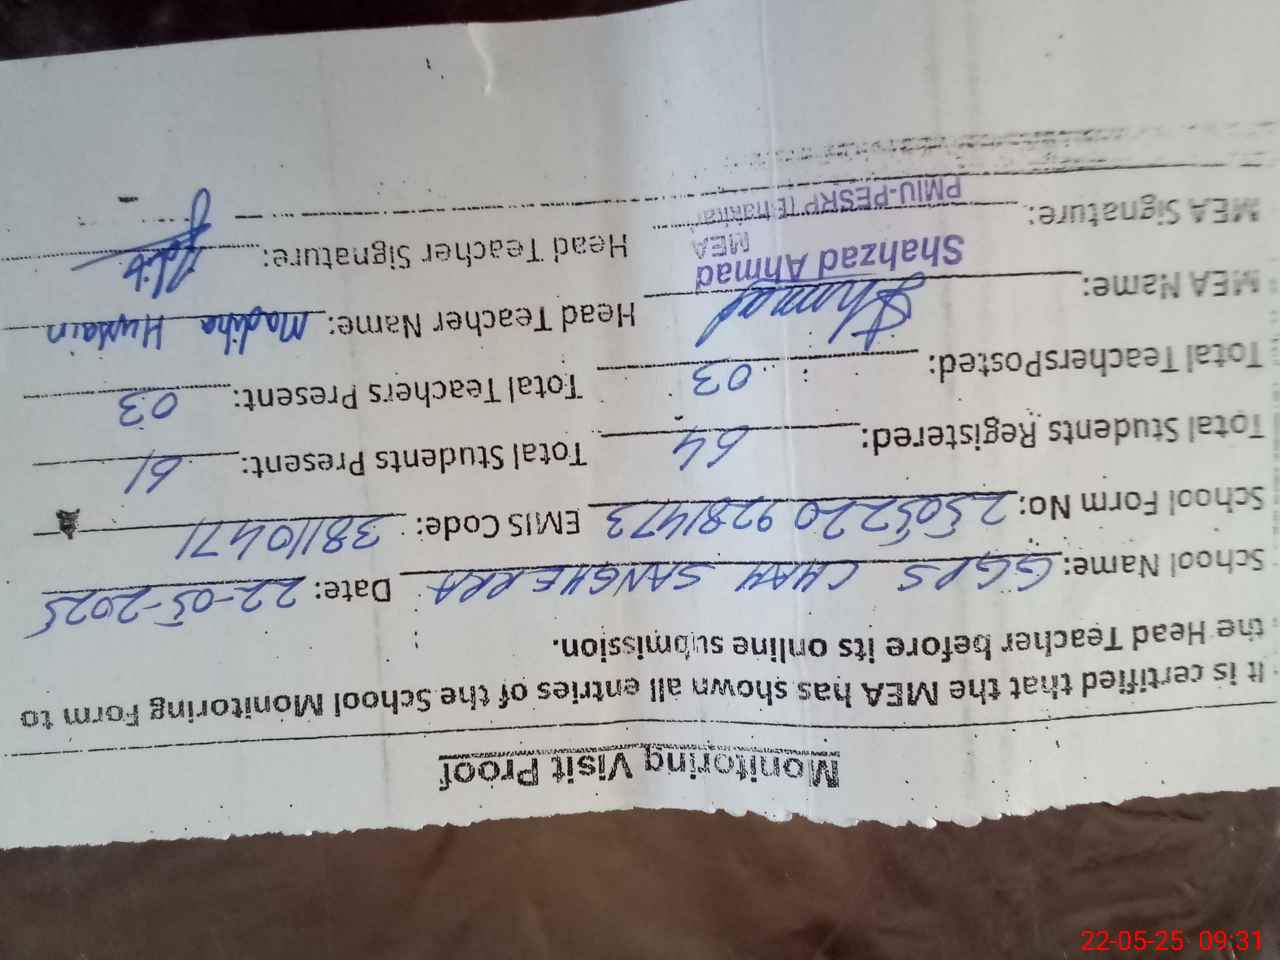 Monitoring Visit Proof
It is certified that the MEA has shown all entries of the School Monitoring Form to
the Head Teacher before its online submission.
School Name: GGPS CHAH SANGHERRA Date: 22-05-2025
School Form No: 25052209281473 EMIS Code: 38110471
Total Students Registered: 64 Total Students Present: 61
Total TeachersPosted: 03 Total Teachers Present: 03
MEA Name: Ahmad Head Teacher Name: Madiha Hussain
Shahzad Ahmad
MEA Signature: MEA Head Teacher Signature:
PMIU-PESRP
22-05-25 09:31